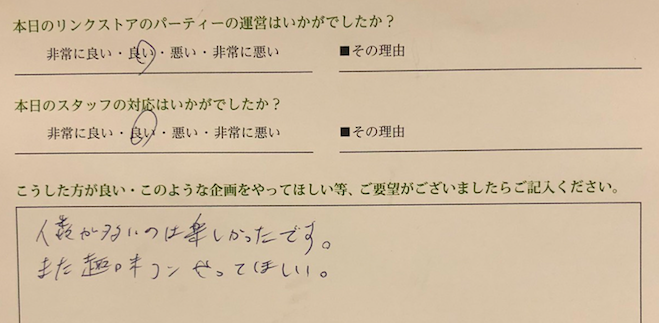 本日のリンクストアのパーティーの運営はいかがでしたか？
非常に良い・良い・悪い・非常に悪い ■その理由
本日のスタッフの対応はいかがでしたか？
非常に良い・良い・悪い・非常に悪い ■その理由
こうした方が良い・このような企画をやってほしい等、ご要望がございましたらご記入ください。
人数が多いのは楽しかったです。
また趣味コンやってほしい。